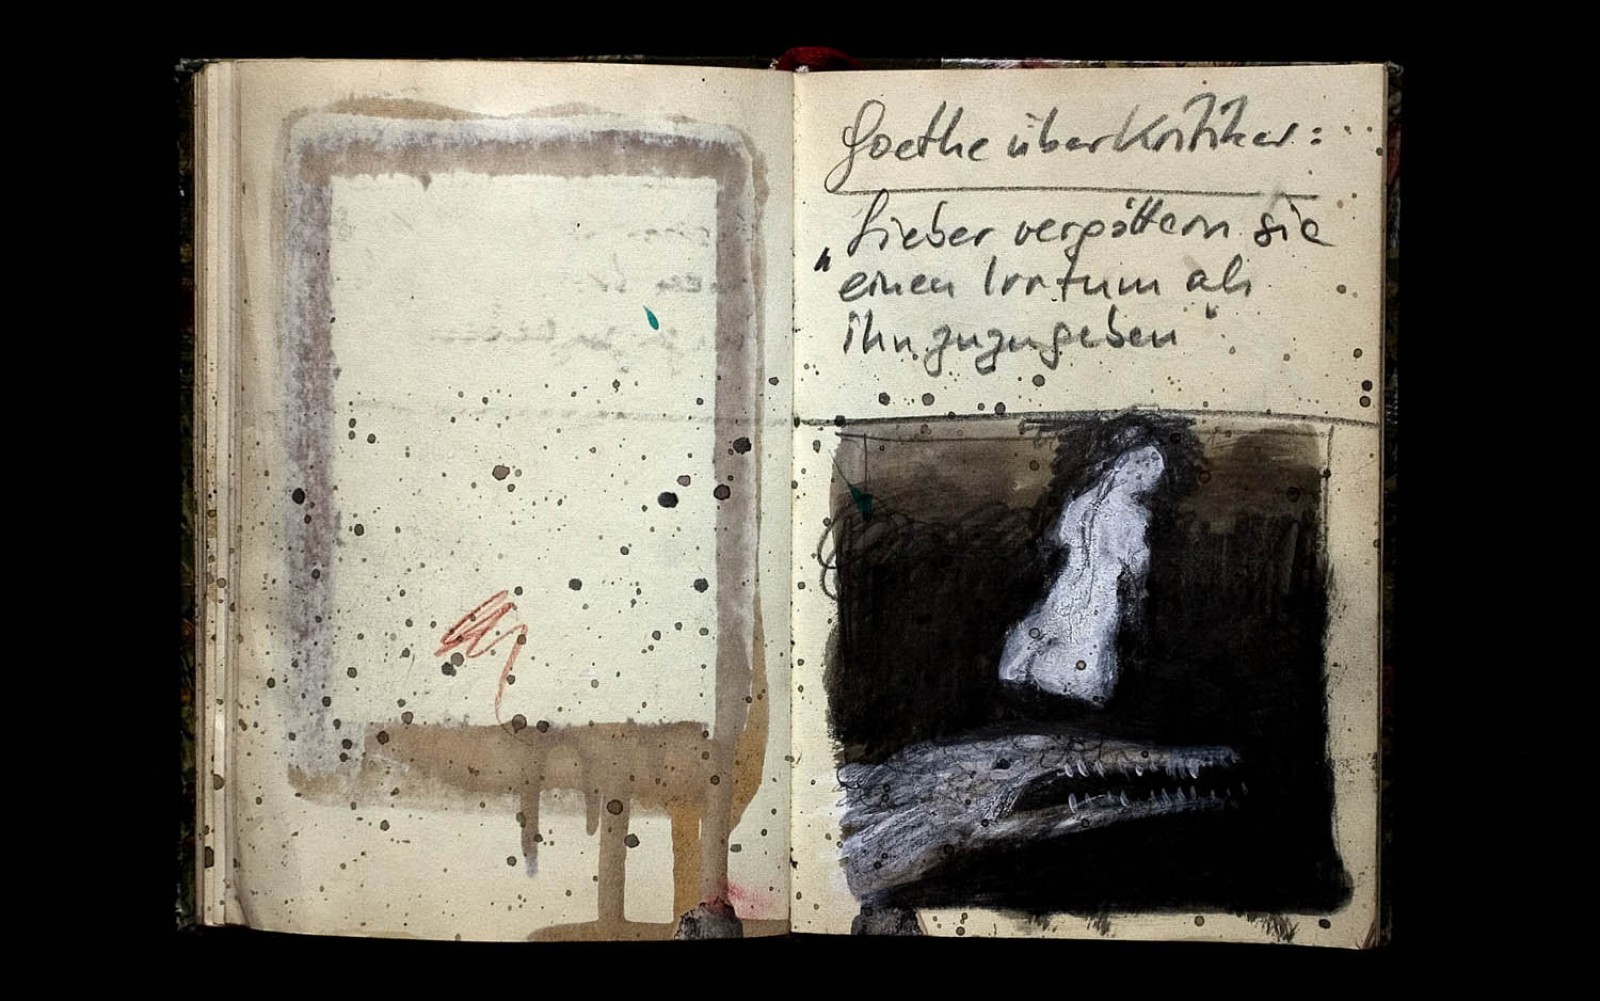 Goethe über Kritiker:
„Lieber vergöttern sie
einen Irrtum als
ihn zuzugeben“